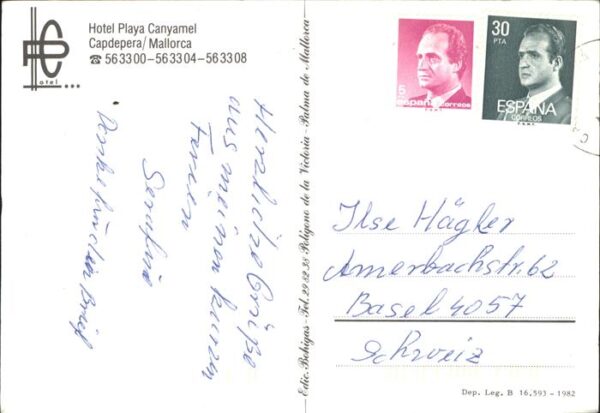 Hotel Playa Canyamel
Capdepera/Mallorca
☎ 563300-563304-563308
Hotel...
5
españa correos
F.N.M.T.
30
PTA
ESPAÑA
CORREOS
F.N.M.T.
Herzliche Grüsse
aus meinen kurzen
Ferien
Serafino
Danke für dein Brief
Edic. Bohigas-Tel. 29 82 38 Polígono de la Victoria-Palma de Mallorca
Ilse Hägler
Amerbachstr. 62
Basel 4057
Schweiz
Dep. Leg. B 16,593 - 1982